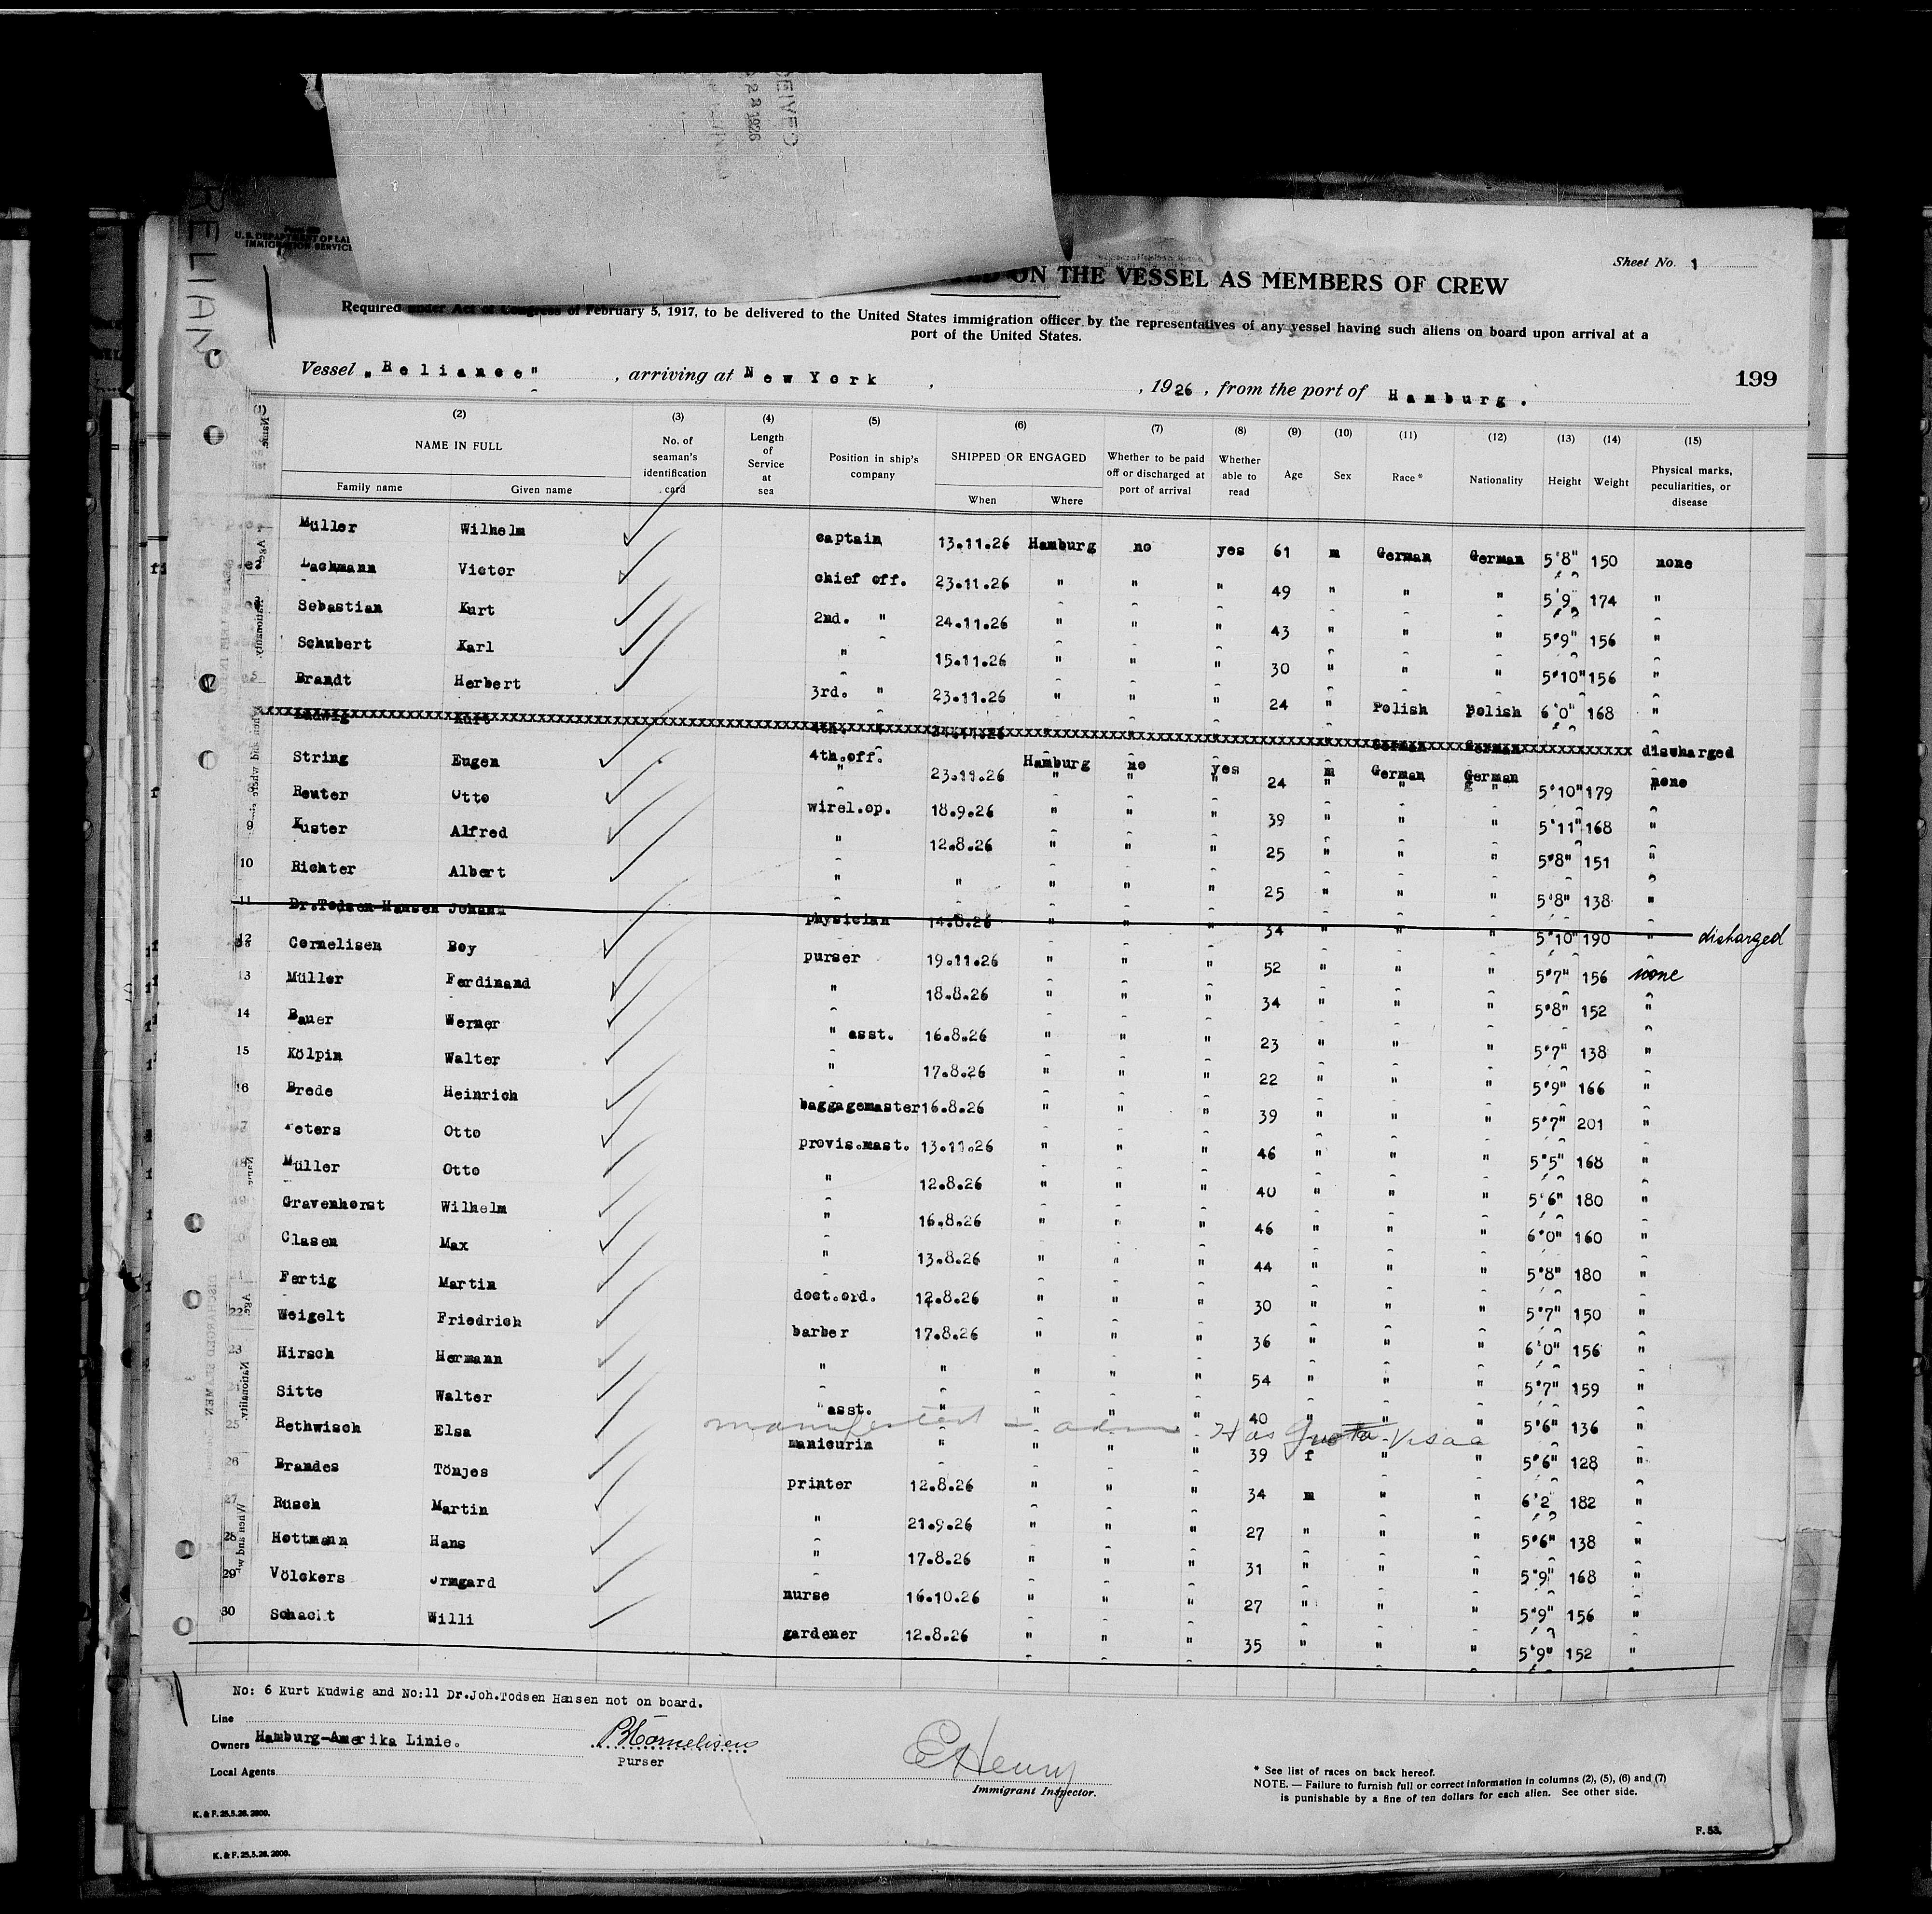 CEIVED
2 8 1926
RELIAN
U. S. DEPARTMENT OF LA
IMMIGRATION SERVICE
Sheet No. 1
ON THE VESSEL AS MEMBERS OF CREW
Required under Act of Congress of February 5, 1917, to be delivered to the United States immigration officer by the representatives of any vessel having such aliens on board upon arrival at a
port of the United States.
Vessel „Reliance", arriving at New York, 1926, from the port of Hamburg.
199
(2) (3) (4) (5) (6) (7) (8) (9) (10) (11) (12) (13) (14) (15)
NAME IN FULL Family name Given name | No. of seaman's identification card | Length of Service at sea | Position in ship's company | SHIPPED OR ENGAGED When Where | Whether to be paid off or discharged at port of arrival | Whether able to read | Age | Sex | Race * | Nationality | Height | Weight | Physical marks, peculiarities, or disease
Müller Wilhelm captain 13.11.26 Hamburg no yes 61 m German German 5'8" 150 none
Lachmann Victor chief off. 23.11.26 " " " 49 " " " 5'9" 174 "
Sebastian Kurt 2nd. " 24.11.26 " " " 43 " " " 5'9" 156 "
Schubert Karl " 15.11.26 " " " 30 " " " 5'10" 156 "
5 Brandt Herbert 3rd. " 23.11.26 " " " 24 " Polish Polish 6'0" 168 "
Ludwig Kurt 4th. " 24.11.26 " " " " German German discharged
String Eugen 4th.off. 23.11.26 Hamburg no yes 24 m German German 5'10" 179 none
8 Reuter Otto wirel.op. 18.9.26 " " " 39 " " " 5'11" 168 "
9 Kuster Alfred " 12.8.26 " " " 25 " " " 5'8" 151 "
10 Richter Albert " " " " " 25 " " " 5'8" 138 "
11 Dr.Todsen-Hansen Johann physician 14.8.26 " " " 34 " " " 5'10" 190 " discharged
12 Cornelisen Boy purser 19.11.26 " " " 52 " " " 5'7" 156 none
13 Müller Ferdinand " 18.8.26 " " " 34 " " " 5'8" 152 "
14 Bauer Werner " asst. 16.8.26 " " " 23 " " " 5'7" 138 "
15 Kölpin Walter " 17.8.26 " " " 22 " " " 5'9" 166 "
16 Brede Heinrich baggagemaster 16.8.26 " " " 39 " " " 5'7" 201 "
17 Peters Otto provis.mast. 13.11.26 " " " 46 " " " 5'5" 168 "
18 Müller Otto " 12.8.26 " " " 40 " " " 5'6" 180 "
19 Gravenhorst Wilhelm " 16.8.26 " " " 46 " " " 6'0" 160 "
20 Clasen Max " 13.8.26 " " " 44 " " " 5'8" 180 "
21 Fertig Martin doct.ord. 12.8.26 " " " 30 " " " 5'7" 150 "
22 Weigelt Friedrich barber 17.8.26 " " " 36 " " " 6'0" 156 "
23 Hirsch Hermann " " " " " 54 " " " 5'7" 159 "
Sitte Walter " asst. " " " " 40 " " " 5'6" 136 "
manifested - adm Has Quota Visaa
25 Rethwisch Elsa manicurin " " " " 39 f " " 5'6" 128 "
26 Brandes Tönjes printer 12.8.26 " " " 34 m " " 6'2" 182 "
27 Rüsch Martin " 21.9.26 " " " 27 " " " 5'6" 138 "
28 Hottmann Hans " 17.8.26 " " " 31 " " " 5'9" 168 "
29 Völckers Jrmgard nurse 16.10.26 " " " 27 " " " 5'9" 156 "
30 Schacht Willi gardener 12.8.26 " " " 35 " " " 5'9" 152 "
No: 6 Kurt Kudwig and No:11 Dr.Joh.Todsen Hansen not on board.
Line
Owners Hamburg-Amerika Linie.
Local Agents
BCornelisen
purser
EHenry
Immigrant Inspector.
* See list of races on back hereof.
NOTE. — Failure to furnish full or correct information in columns (2), (5), (6) and (7)
is punishable by a fine of ten dollars for each alien. See other side.
K. & F. 25.5.26. 2000.
F. 53.
K. & F. 25.5.26. 2000.